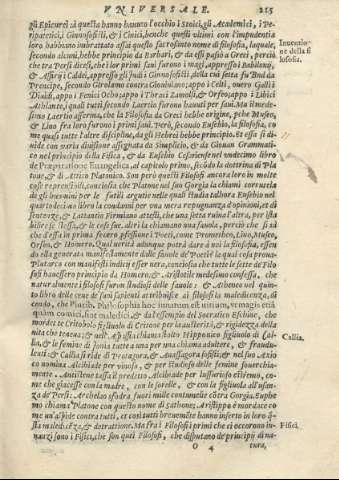 VNIVERSALE. 215
gli Epicurei à questa hanno hauuto l'occhio i Stoici, gli Academici, i Pe-
ripatetici, i Ginnosofisti, & i Cinici, benche questi ultimi con l'impudentia
loro habbiano imbrattato assai questo sacrosanto nome di filosofia, laquale,
secondo alcuni, hebbe principio da Barbari, & da essi passò a Greci, percio
che tra Persi dicesi, che i lor primi savi furono i magi, appresso i Babilonij,
& Assirij i Caldei, appresso gli Indi i Ginnosofisti, della cui setta fu Bud da
Prencipe, secondo Girolamo contra Giouiniano; appo i Celti, ouero Galli i
Druidi, appo i Fenici Ocho, appo i Thraci Zamolsi, & Orfeo, appo i Libici
Athlante, i quali tutti secondo Laertio furono hauuti per saui. Ma il mede-
simo Laertio asserma, che la Filosofia da Greci hebbe origine, pche Museo,
& Lino fra loro furono i primi saui. Però, secondo Eusebio, la filosofia, co
me quasi tutte l'altre discipline, da gli Hebrei hebbe principio. Et essa si di
uide con varia diuisione assegnata da Simplicio, & da Giouan Grammati-
co nel principio della Fisica, & da Eusebio Cesariense nel undecimo libro
de Præparatione Euangelica al capitolo primo, secondo la dottrina di Pla
tone, & di Attico Platonico. Son però questi Filosofi ancora loro in molte
cose reprensibili, conciosia che Platone nel suo Gorgia la chiami corruttela
de gli huomini per le futili argutie nelle quali studia talhora Eusebio nel
quartodecimo libro la condanni per una mera repugnanza d'opinioni, et di
sentenze, & Lattantio Firmiano attesti, che una setta ruina l'altra, per sta
bilire se stessa, & le cose sue, altri la chiamano una fauola, percio che si sà
che di essa in prima fecero professione i Poeti, come Prometheo, Lino, Museo,
Orfeo, & Homero. Qual verità adunque potrà dare à noi la filosofia, essen
do essa generata manifestamente dalle fauole de' Poeti? le qual cosa proua
Plutarco con manifesti indicij esser vera, conciosia che tutte le sette de Filo
sofi hauessero principio da Homero, & Aristotile medesimo confessa, che
naturalmente i filosofi furon studiosi delle fauole: & Atheneo nel quin-
to libro delle cene de' saui sapienti attribuisce ai filosofi la maledicenza, di
cendo, che Plæriq. Philosophia hoc innatum est uitium, vt magis etiā
quàm comici, sint maledici, & da l'essempio del Socratico Eschine, che
mordette Critobolo figliuolo di Critone per ignauia, & rigidezza della
Callia, & le femine di Ionia tutte a una per una chiama adultere, & fraudu-
lenti: & Callia si ride di Protagora, & Anassagora sofisti: & nel suo Axio
co nomina Alcibiade per vinoso, & per studioso delle femine fuor chiama-
mente. Antisthene tassa il predetto Alcibiade per lussurioso estremo, co-
me che giacesse con la madre, con le sorelle, & con la figliuola all'usan-
za de' Persi: Archelao sfodra fuori mille contumelie cōtra Gorgia. Euphe
mo chiama Platone con questo nome di sathone: Aristippo è mordace co
me un' aspide contra tutti, et cosi tutti breuemēte hanno inserto in loro q̄-
sta maledicēza, & detrattione. Ma fra i Filosofi i primi che ci occorrono in-
nanzi sono i Fisici, che son quei Filosofi, che disputano de' principij di na-
O 4 tura,
Inuentio-
ne della fi
losofia.
Callia.
Fisici.